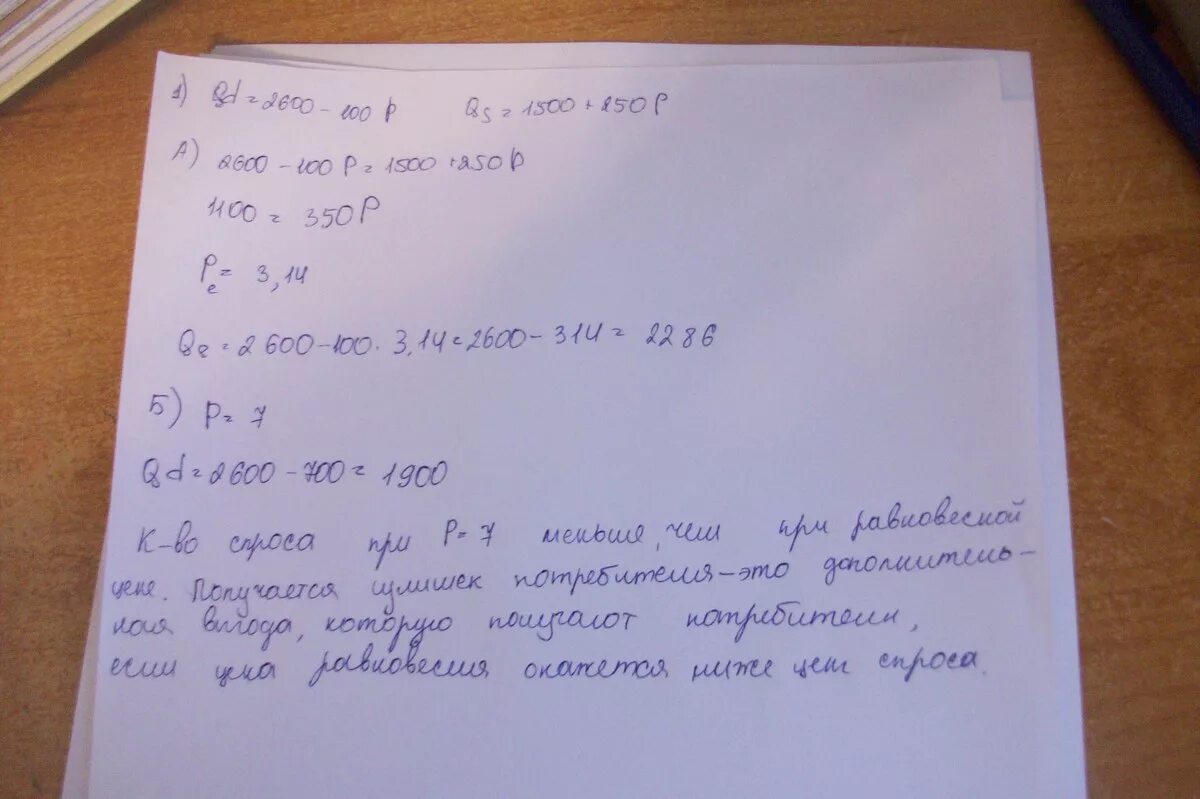 1) Qd = 2600 - 100 P Qs = 1500 + 250 P
А) 2600 - 100 P = 1500 + 250 P
1100 = 350 P
Pe = 3,14
Qe = 2 600 - 100 · 3,14 = 2600 - 314 = 2286
Б) P = 7
Qd = 2600 - 700 = 1900
К-во спроса при P = 7 меньше, чем при равновесной
цене. Получается излишек потребителя - это дополнитель-
ная выгода, которую получают потребители,
если цена равновесия окажется ниже цены спроса.